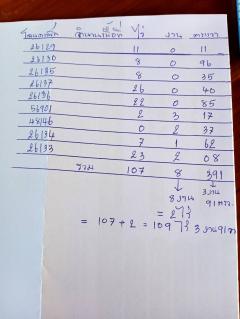 โฉนดที่ดิน จำนวนเนื้อที่ ไร่ งาน ตารางวา
26129 11 0 11
26130 8 0 96
26135 8 0 35
26137 26 0 40
26136 22 0 85
56901 2 3 17
48146 0 2 37
26134 7 1 62
26133 23 2 08
รวม 107 8 391
8 งาน 3 งาน
= 2 ไร่ 91 ตรว.
= 107 + 2 = 109 ไร่ 3 งาน 91 ตรว